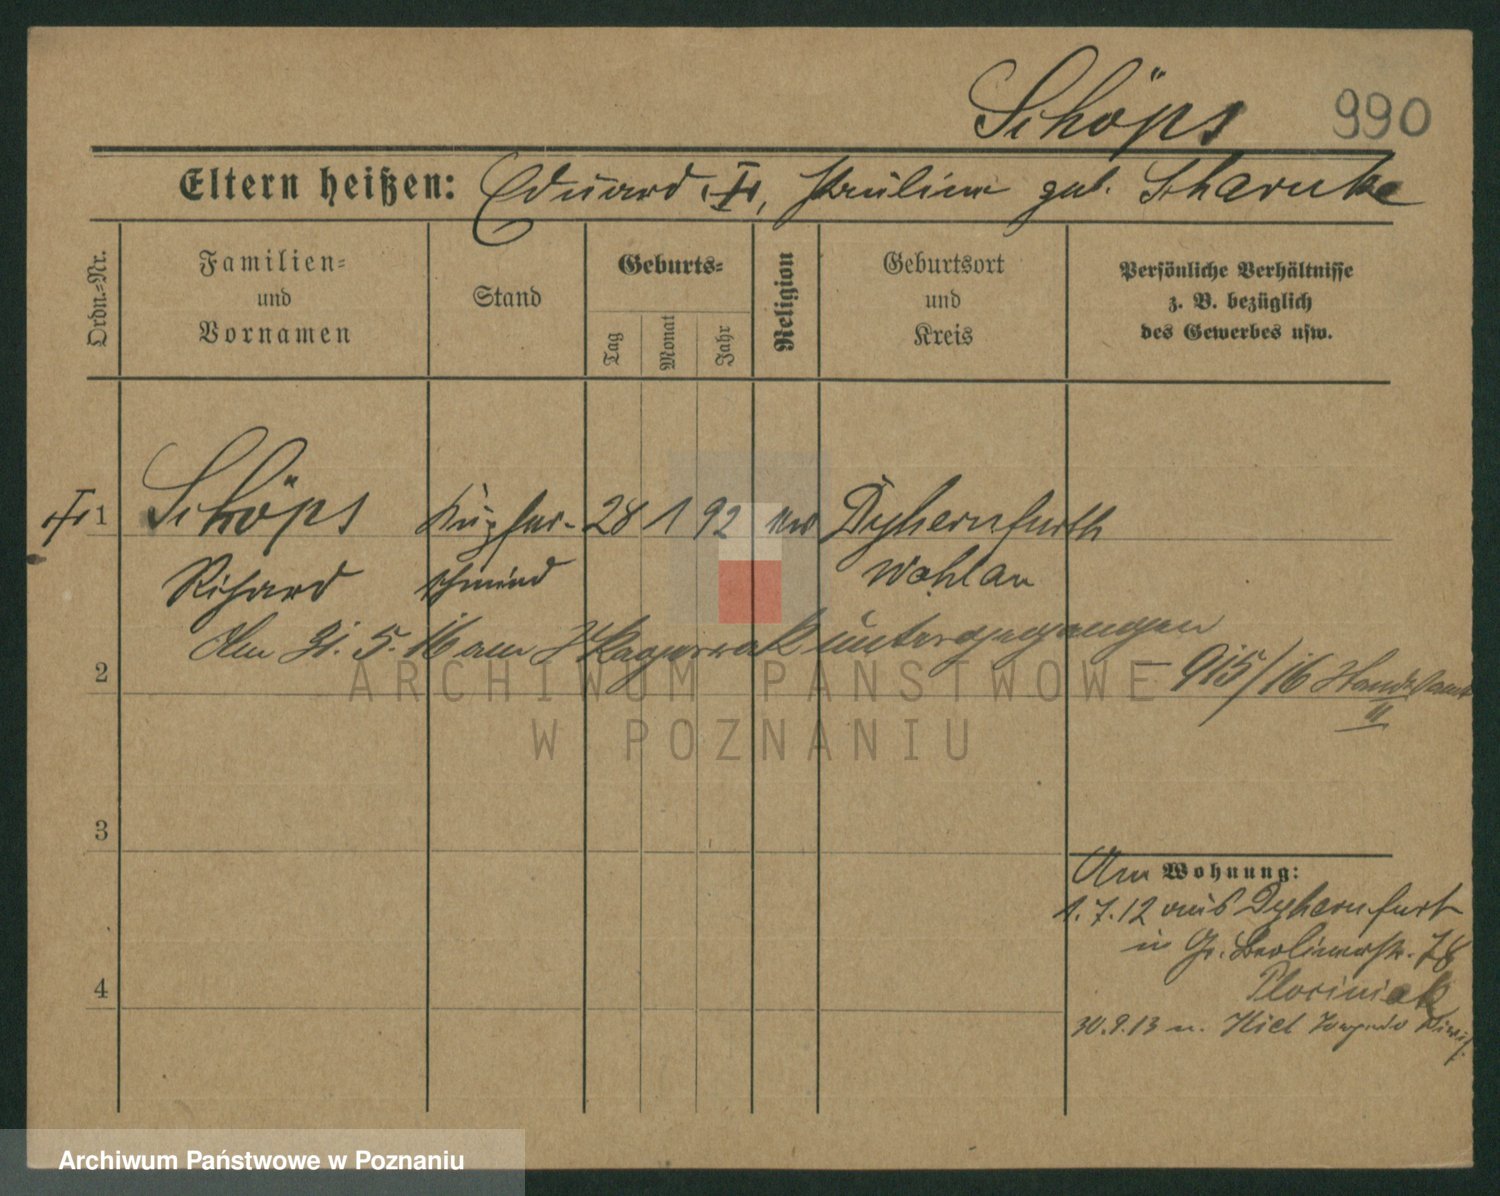 Schöps 990
Eltern heißen: Eduard, Pauline geb. Scharnke
Ordn.=Nr.
Familien=
und
Vornamen
Stand
Geburts=
Tag
Monat
Jahr
Religion
Geburtsort
und
Kreis
Persönliche Verhältnisse
z. B. bezüglich
des Gewerbes usw.
1 Schöps Kupfer- 28 1 92 ev Dyhernfurth
Richard schmied Wohlau
Am 31. 5. 16 am Skagerrak untergegangen
2 – 915/16 Standesamt
II
3
Wohnung:
Am
1. 7. 12 aus Dyhernfurt
in Gr. Berlinerstr. 78
4
30.9.13 n. Kiel Torpedo
ARCHIWUM PAŃSTWOWE
W POZNANIU
Archiwum Państwowe w Poznaniu